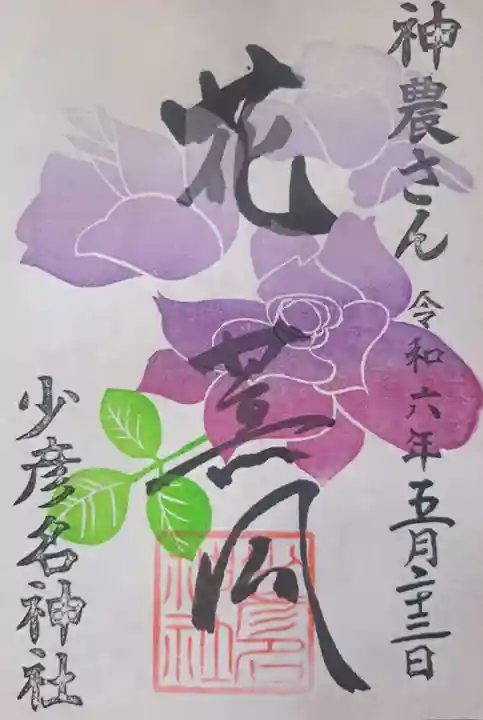 神農さん 令和六年五月二十三日
花薫風
少彦名神社
少彦名
神社